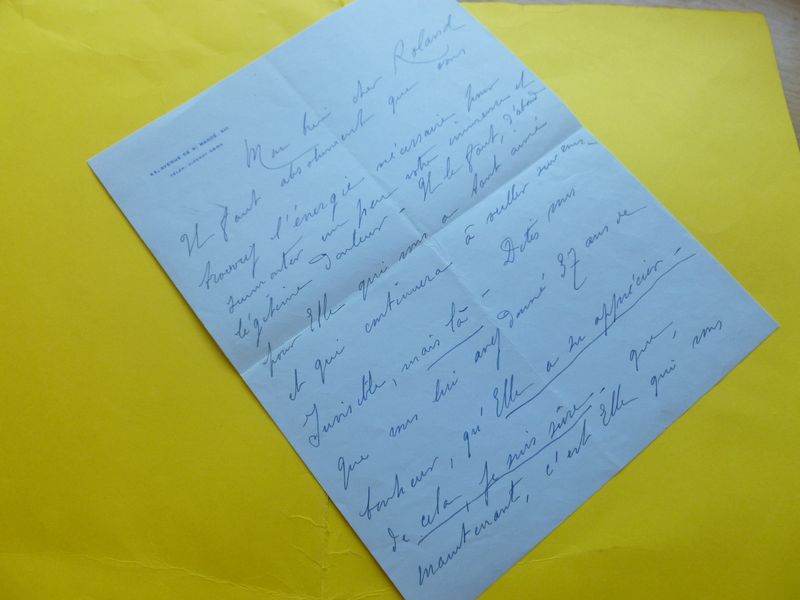 AVENUE DE St MANDÉ, XII
Mon bien cher Roland
Il faut absolument que vous
trouviez l'énergie nécessaire pour
surmonter un peu votre immense et
légitime douleur - Il le faut, d'abord
pour Elle qui vous a tant aimé
et qui continuera à veiller sur vous -
Invisible, mais là - Dites vous
que vous lui avez donné 37 ans de
bonheur, qu'Elle a su apprécier -
de cela, je suis sûre - que,
maintenant, c'est Elle qui vous